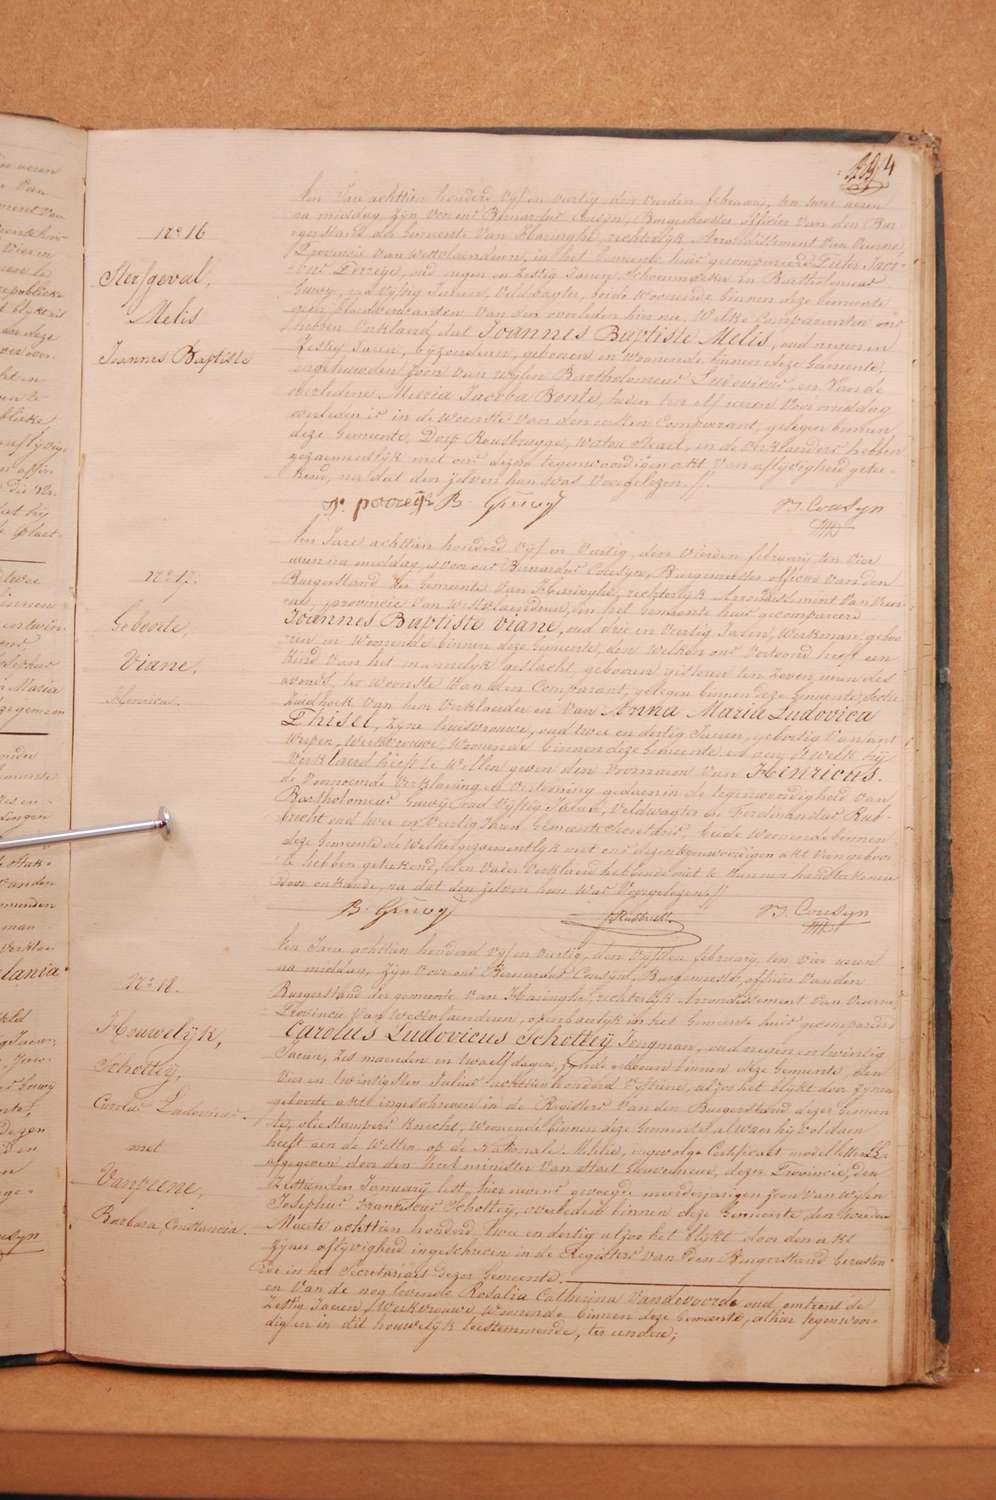 4
N.º 16
Sterfgeval,
Melis
Joannes Baptiste
ten Jare achttien honderd vijf en veertig, den vierden februarij, ten twee uren
na middag, zijn voor ons Bernardus Cousyn, Burgemeester officier van den Bur-
gerstand der Gemeente van Haringhe, rechterlijk Arrondissement van Veurne,
Provincie van Westvlaenderen, in het Gemeente huis gecompareerd Pieter Jaco-
bus oud negen en zestig Jaren, Schoenmaker en Bartholomeus
Gruwy, oud vijftig Jaren, Veldwagter, beide Woonende binnen deze Gemeente
geen bloedverwanten van den overleden hier na, Welke Comparanten ons
hebben Verklaerd, dat Joannes Baptiste Melis, oud negen en
zestig Jaren, bijzonderen, geboren en Woonende binnen deze Gemeente,
ongehuwden Zoon van wijlen Bartholomeus Ludovicus en van de
overledene Maria Jacoba Bonte, heden ten elf uren voor middag
overleden is in de Woonste van den eersten Comparant, gelegen binnen
deze Gemeente, Dorp Rousbrugge, Watou Straet, en de Verklaerders hebben
gezaementlijk met ons dezen tegenwoordigen akt van aflijvigheid getee-
kend, na dat den zelven hun was voorgelezen.
B. Gruwy
B. Cousyn
N.º 17.
Geboorte,
Viane,
Henricus.
ten Jare achttien honderd vijf en veertig, den vierden februarij ten vier
uren na middag, is voor ons Bernardus Cousyn, Burgemeester officier van den
Burgerstand der Gemeente van Haringhe, rechterlijk Arrondissement van Veur-
ne, provincie van Westvlaenderen, in het Gemeente huis gecompareerd
Joannes Baptiste Viane, oud drie en veertig Jaren, Werkman, gebo-
ren en Woonende binnen deze Gemeente, den Welken ons vertoond heeft een
kind van het mannelijk geslacht, geboren gisteren ten zeven uren des
avonds, ter Woonste van den Comparant, gelegen binnen deze Gemeente,
Zuidhoek van hem Verklaerder en van Anna Maria Ludovica
Thisel, zyne huisvrouwe, oud twee en dertig Jaren, geboortig van
Werkvrouwe, Woonende binnen deze Gemeente en aen het welk hij
verklaerd heeft te willen geven den voornaem van Henricus.
de Voornoemde Verklaring en Vertooning gedaen in de tegenwoordigheid van
Bartholomeus Gruwy, oud Vijftig Jaren, Veldwagter en Ferdinandus Rub-
brecht oud twee en veertig Jaren Gemeente Secretaris, beide Woonende binnen
deze Gemeente de Welke gezaementlijk met ons dezen tegenwoordigen akt van geboor-
te hebben geteekend, den vader verklaerd hebbende niet te kunnen handteekenen
door onkunde, na dat den zelven hun was voorgelezen.
B. Gruwy
F. Rubbrecht
B. Cousyn
N.º 18.
Houwelijk,
Scholteij,
Carolus Ludovicus.
met
Vanpeene,
Barbara, Constancia.
ten Jare achttien honderd vijf en veertig, den vijfden february, ten vier uren
na middag, zijn voor ons Bernardus Cousyn, Burgemeester, officier van den
Burgerstand der gemeente van Haringhe, rechterlyk Arrondissement van Veurne,
Provincie van Westvlaenderen, openbaerlijk in het Gemeente huis gecompareerd
Carolus Ludovicus Scholteij Jongman, oud negen en twintig
Jaren, zes maenden en twaelf dagen, zynde geboren binnen deze Gemeente, den
vier en twintigsten Julius achttien honderd vyftiene, alzoo het blykt door zynen
geboorte akt ingeschreven in de Registers van den Burgerstand dezer Gemeen-
te, oliestampers knecht, Woonende binnen deze Gemeente, alwaer hij voldaen
heeft aen de Wetten op de Nationale Militie, ingevolge Certificaet model letter
afgegeven door den heer minister van staet Gouverneur, dezer Provincie, den
January lest, meerderjarigen Zoon van wylen
Josephus Franciscus Scholteij, overleden binnen deze Gemeente den tweeden
Maerte achttien honderd twee en dertig alzoo het blijkt door den akt
zijner aflijvigheid ingeschreven in de Registers van den Burgerstand berusten-
de in het Secretariaet dezer Gemeente.
en Van de nog levende Rosalia Catherina Vandevoorde oud omtrent de
zestig Jaren, Werkvrouwe Woonende binnen deze Gemeente, alhier tegenwoor-
dig en in dit houwelijk toestemmende, ter eendre,